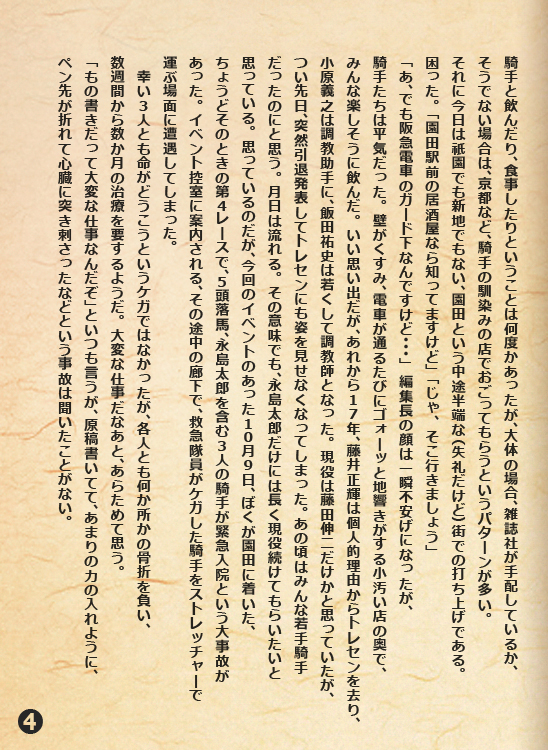 騎手と飲んだり、食事したりということは何度かあったが、大体の場合、雑誌社が手配しているか、
そうでない場合は、京都など、騎手の馴染みの店でおごってもらうというパターンが多い。
それに今日は祇園でも新地でもない、園田という中途半端な(失礼だけど)街での打ち上げである。
困った。「園田駅前の居酒屋なら知ってますけど」「じゃ、そこ行きましょう」
「あ、でも阪急電車のガード下なんですけど・・」編集長の顔は一瞬不安げになったが、
騎手たちは平気だった。壁がくすみ、電車が通るたびにゴォーッと地響きがする小汚い店の奥で、
みんな楽しそうに飲んだ。いい思い出だが、あれから17年、藤井正輝は個人的理由からトレセンを去り、
小原義之は調教助手に、飯田祐史は若くして調教師となった。現役は藤田伸二だけかと思っていたが、
つい先日、突然引退発表してトレセンにも姿を見せなくなってしまった。あの頃はみんな若手騎手
だったのにと思う。月日は流れる。その意味でも、永島太郎だけには長く現役続けてもらいたいと
思っている。思っているのだが、今回のイベントのあった10月9日、ぼくが園田に着いた、
ちょうどそのときの第4レースで、5頭落馬、永島太郎を含む3人の騎手が緊急入院という大事故が
あった。イベント控室に案内される、その途中の廊下で、救急隊員がケガした騎手をストレッチャーで
運ぶ場面に遭遇してしまった。
幸い3人とも命がどうこうというケガではなかったが、各人とも何か所かの骨折を負い、
数週間から数か月の治療を要するようだ。大変な仕事だなあと、あらためて思う。
「もの書きだって大変な仕事なんだぞ」といつも言うが、原稿書いてて、あまりの力の入れように、
ペン先が折れて心臓に突き刺さったなどという事故は聞いたことがない。
4